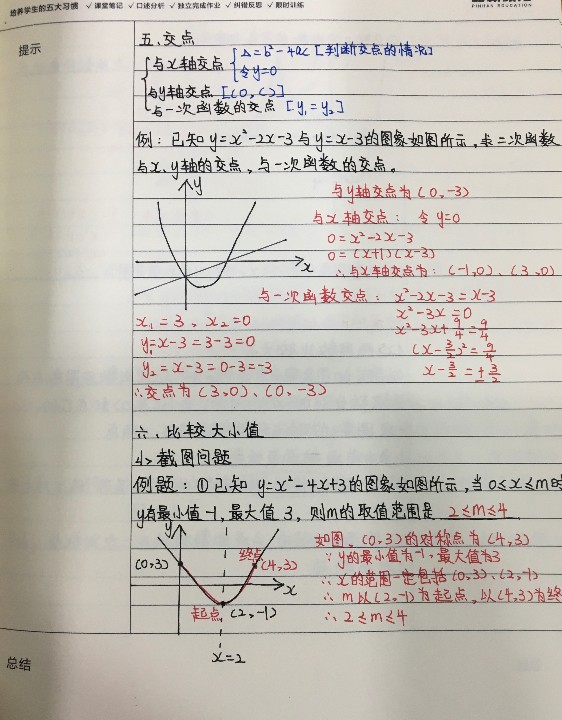 培养学生的五大习惯 ✓课堂笔记 ✓口述分析 ✓独立完成作业 ✓纠错反思 ✓限时训练
提示
五、交点
与x轴交点 { Δ=b²-4ac [判断交点的情况]
令y=0
与y轴交点 [(0, c)]
与一次函数的交点 [y₁=y₂]
例：已知y=x²-2x-3与y=x-3的图象如图所示，求二次函数
与x、y轴的交点，与一次函数的交点。
y
x
与y轴交点为(0,-3)
与x轴交点：令y=0
0=x²-2x-3
0=(x+1)(x-3)
∴与x轴交点为：(-1,0)、(3,0)
与一次函数交点：x²-2x-3=x-3
x²-3x=0
x²-3x+9/4=9/4
(x-3/2)²=9/4
x-3/2=±3/2
x₁=3、x₂=0
y₁=x-3=3-3=0
y₂=x-3=0-3=-3
∴交点为(3,0)、(0,-3)
六、比较大小值
<1>截图问题
例题：①已知 y=x²-4x+3的图象如图所示，当0≤x≤m时
y有最小值-1，最大值3，则m的取值范围是 2≤m≤4
y
(0,3)
终点
(4,3)
x
起点
(2,-1)
x=2
如图，(0,3)的对称点为(4,3)
∵y的最小值为-1，最大值为3
∴x的范围一定包括(0,3)、(2,-1)
∴m以(2,-1)为起点，以(4,3)为终
∴2≤m≤4
总结